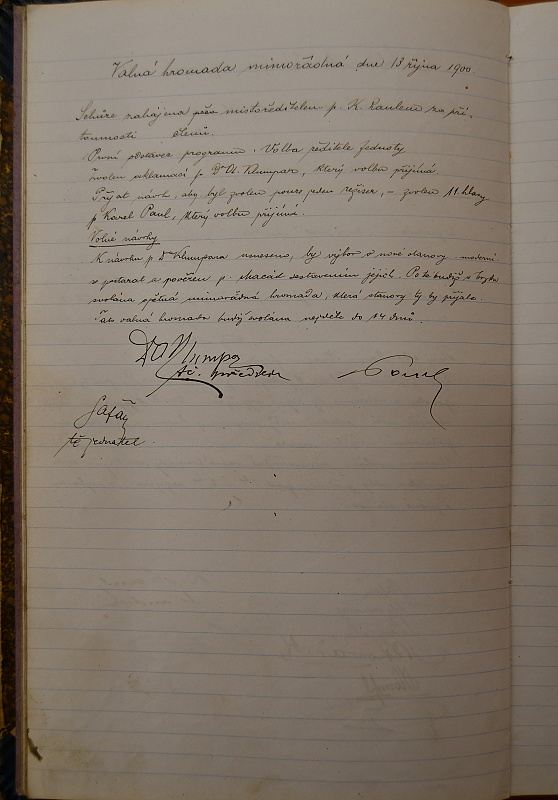 Valná hromada mimořádná dne 13 října 1900
Schůze zahájena p. místoředitelem p. K. Paulem za pří-
tomnosti členů.
První odstavec programu. Volba ředitele jednoty
Zvolen aklamací p. Dr O. Klumpar, který volbu přijímá.
Přijat návrh, aby byl zvolen pouze jeden režiser, – zvolen 11 hlasy
p Karel Paul, který volbu přijímá.
Volné návrhy
K návrhu p Dra Klumpara usneseno, by výbor o nové stanovy
se postaral a pověřen p. Macák sestavením jejich. Po té budiž
svolána zpětná mimořádná hromada, která stanovy ty by přijala.
Tato valná hromada budiž svolána nejdéle do 14 dnů.
Dr O Klumpar
Paul
t. č.
Šafář
tč jednatel.